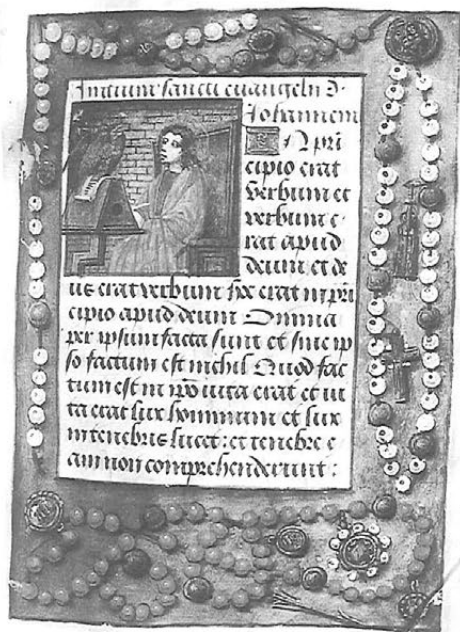 Initium sancti euangelii ẜ
Johannem
IN pri
cipio erat
verbum et
verbum e
rat apud
deum et de
us erat verbum hoc erat in pri
cipio apud deum Omnia
per ipsum facta sunt et sine ip
so factum est nichil Quod fac
tum est in ip̄o vita erat et vi
ta erat lux hominum et lux
in tenebris lucet: et tenebre e
am non comprehenderunt :